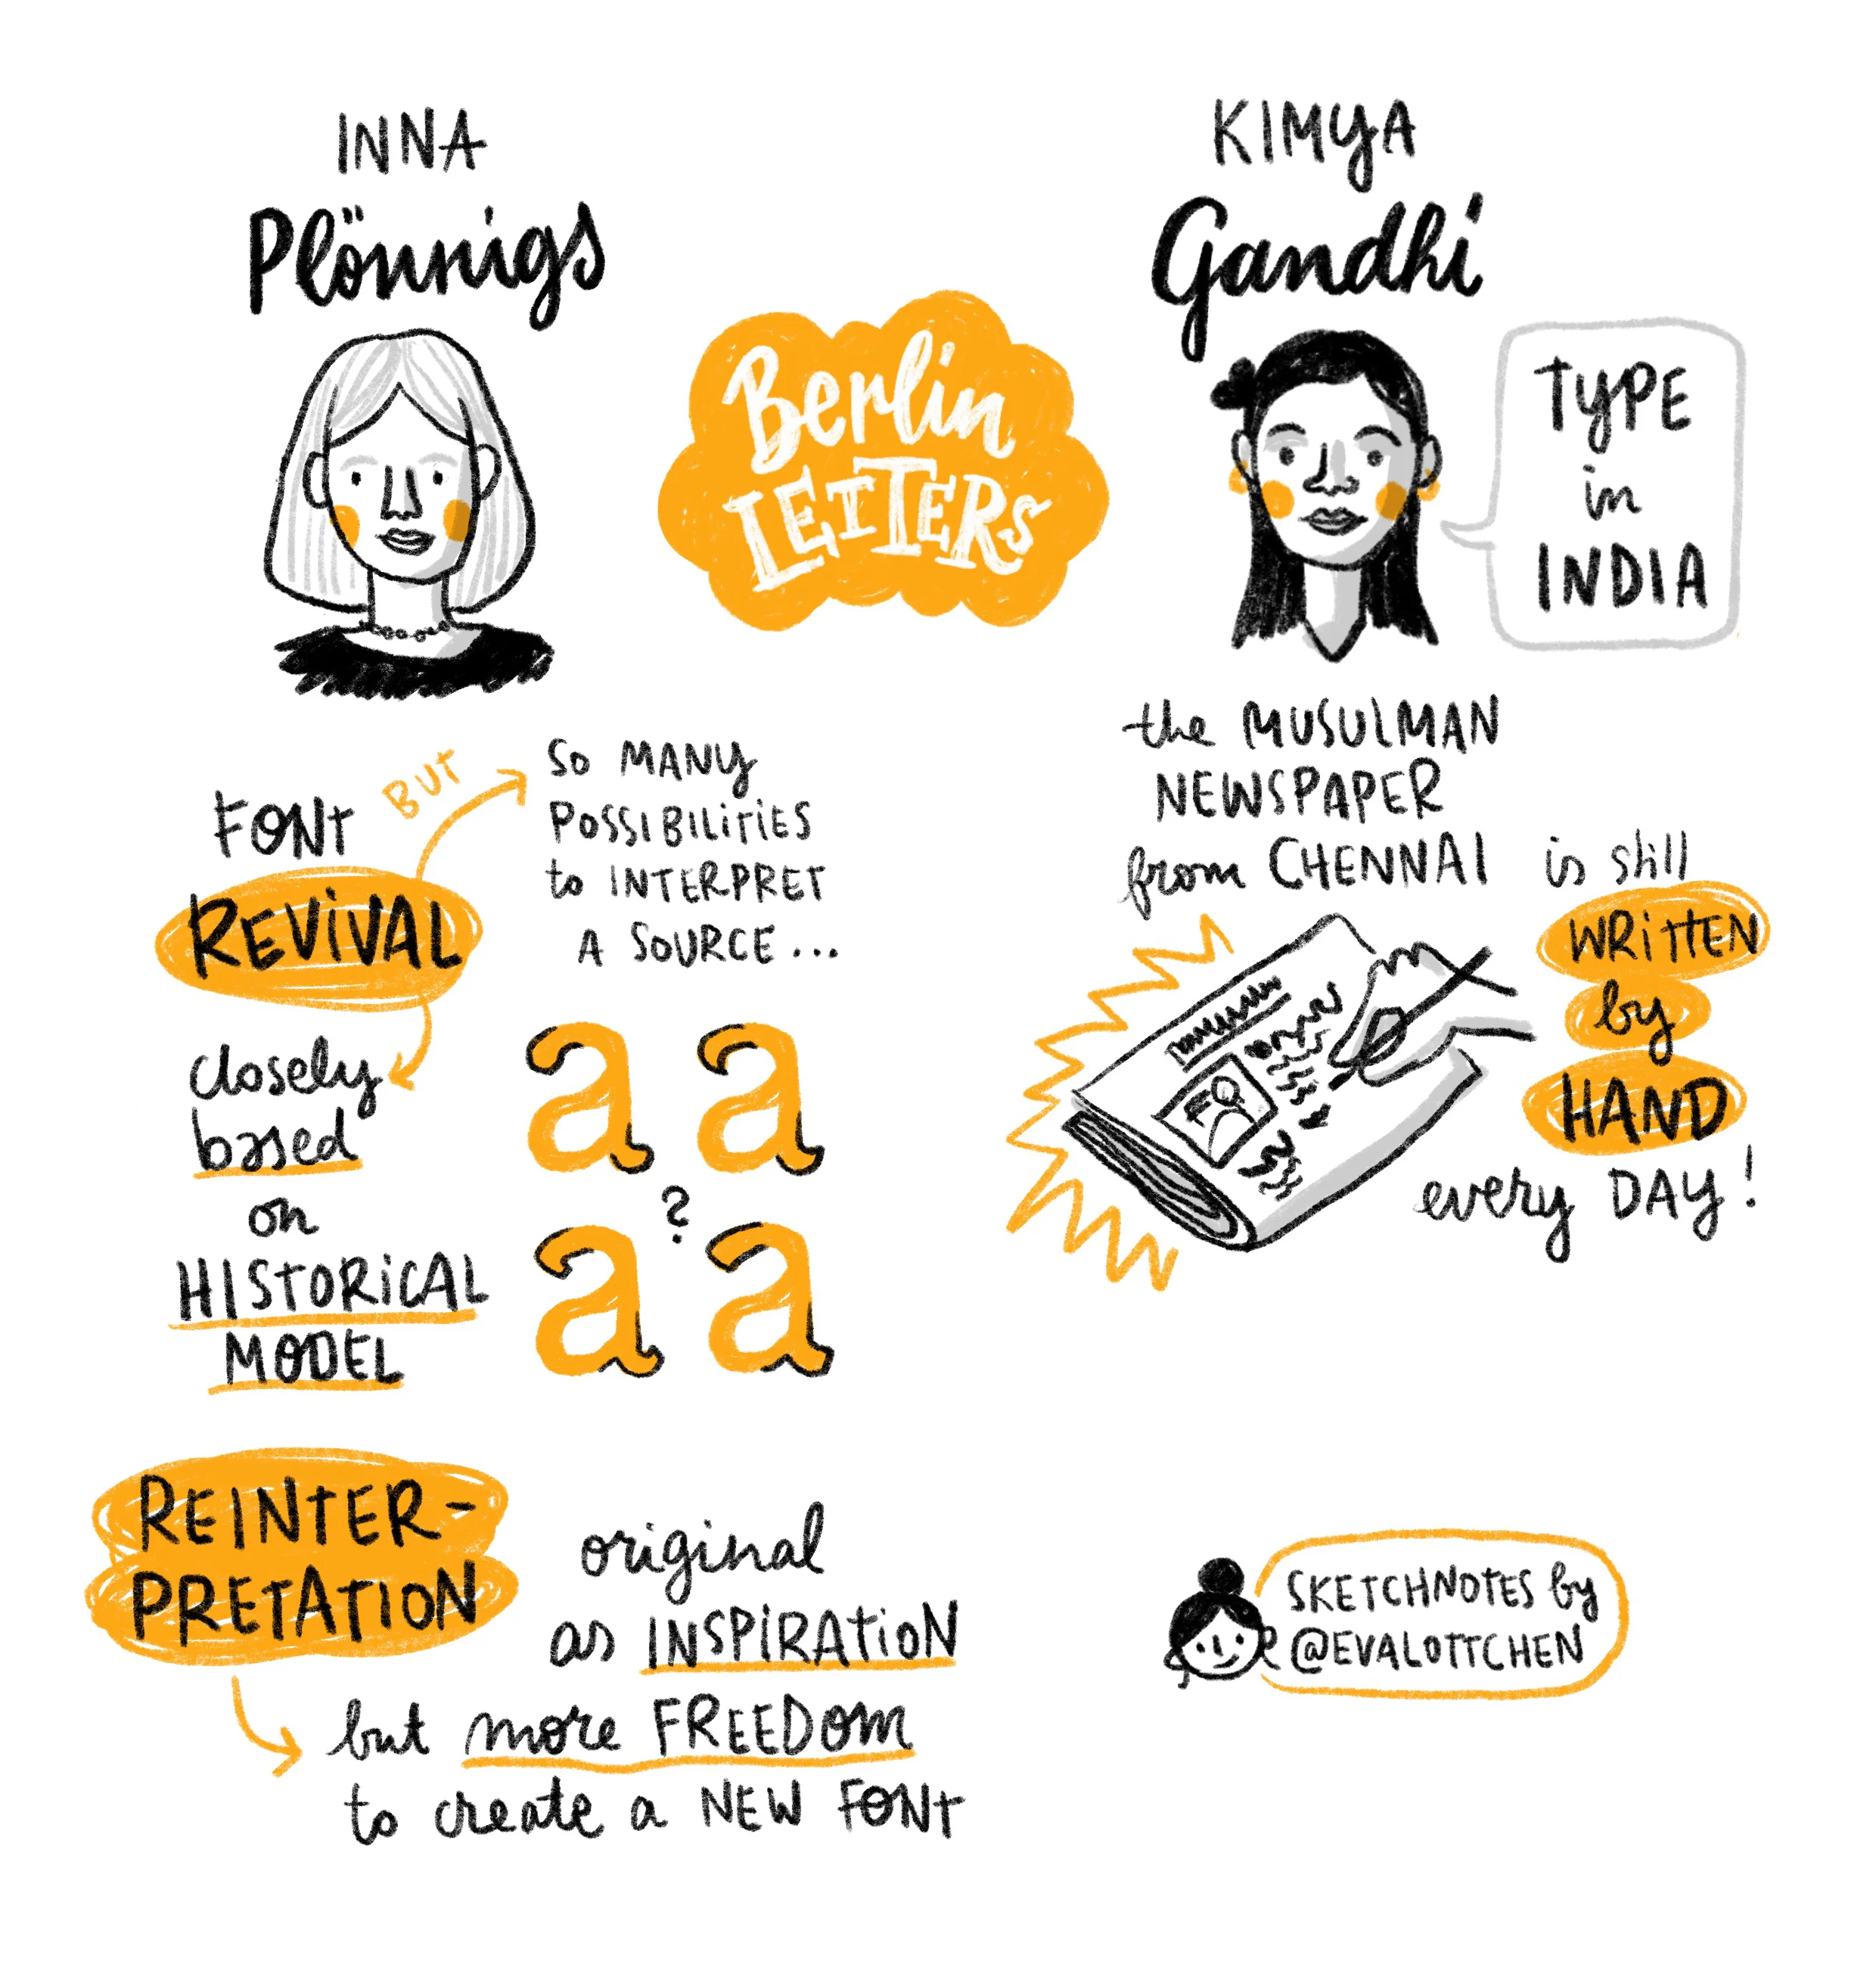 INNA
Plönnigs
Berlin
LETTERS
KIMYA
Gandhi
TYPE
in
INDIA
FONT
REVIVAL
BUT
SO MANY
POSSIBILITIES
to INTERPRET
A SOURCE...
closely
based
on
HISTORICAL
MODEL
a a
?
a a
REINTER-
PRETATION
original
as INSPIRATION
but more FREEDOM
to create a NEW FONT
the MUSULMAN
NEWSPAPER
from CHENNAI is still
WRITTEN
by
HAND
every DAY!
SKETCHNOTES by
@EVALOTTCHEN